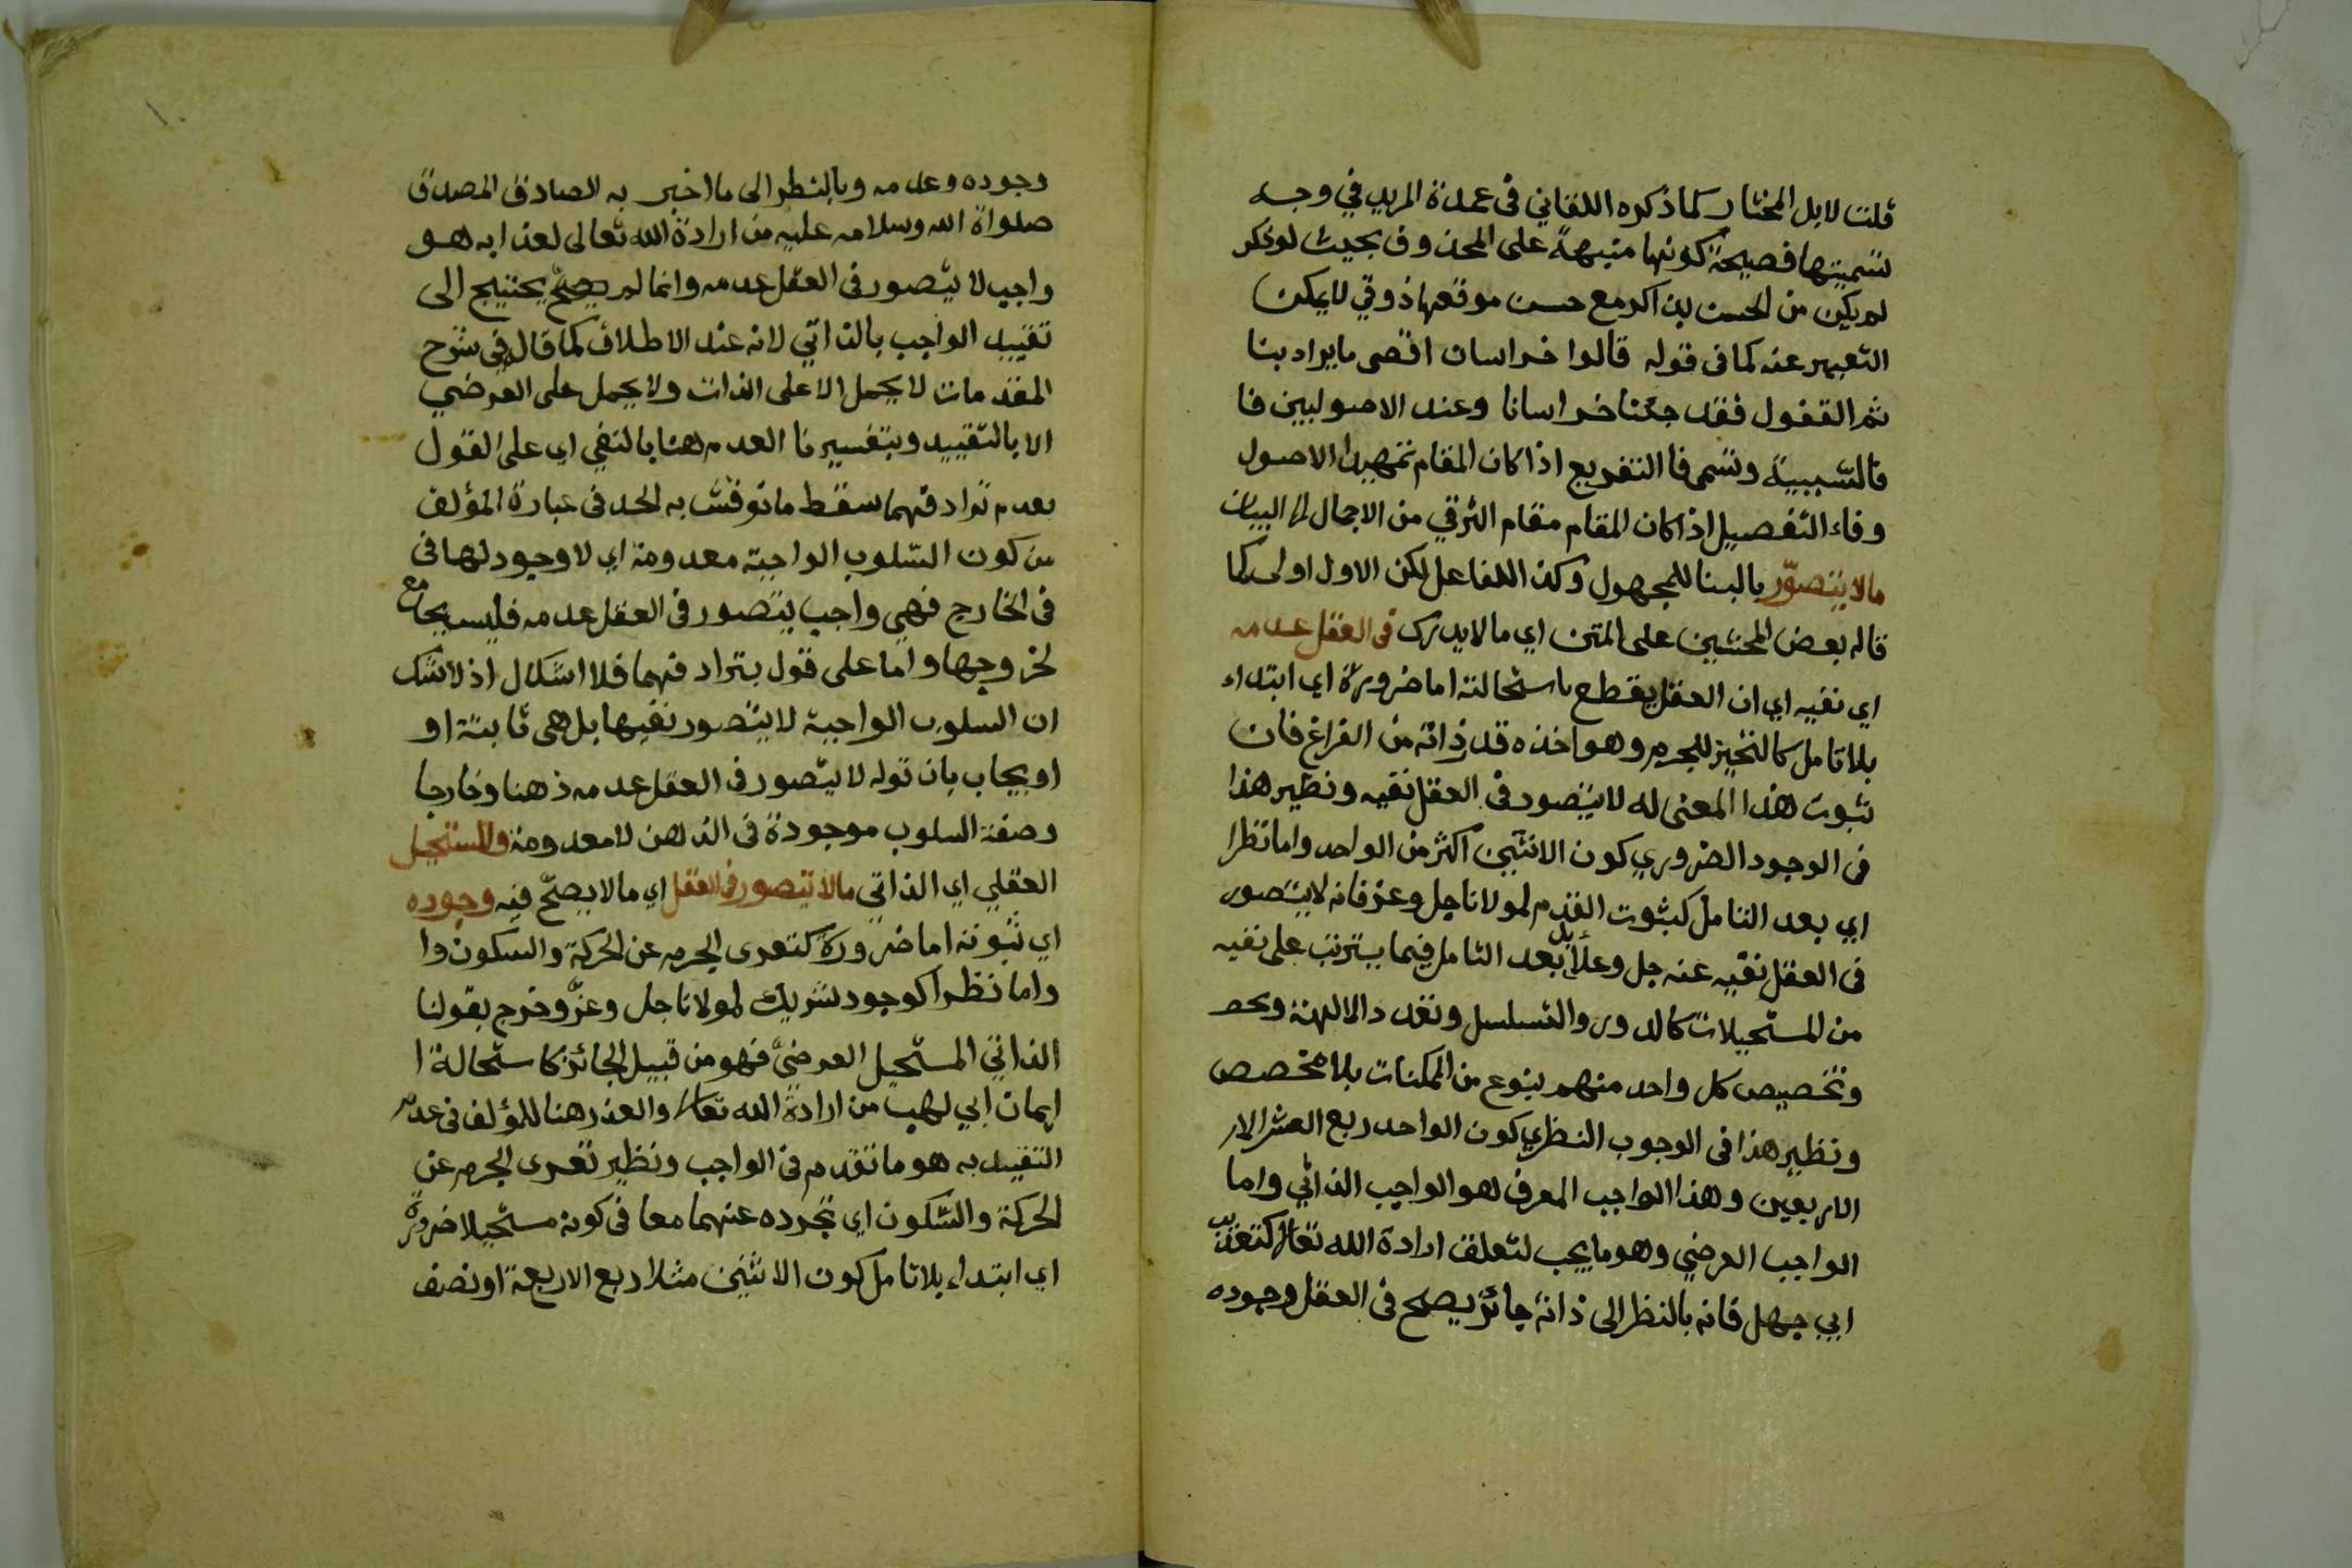 قلت لا بل المختار كما ذكره اللقاني في عمدة المريد في وجه
تسميتها فصيحة كونها منبهة على المحذوف بحيث لو ذكر
لم يكن من الحسن بذاك مع حسن موقعها ذوقي لا يمكن
التعبير عنه كما في قوله قالوا خراسان اقصى ما يراد بنا
ثم القفول فقد جئنا خراسانا وعند الاصوليين فا
فا السببية وتسمى فا التفريع اذا كان المقام تمهيدا الاصول
وفاء التفصيل اذا كان المقام مقام الترقي من الاجمال الى البيان
ما لا يتصوّر بالبنا للمجهول وكذا للفاعل لكن الاول اولى كما
قاله بعض المحشين على المتن اي ما لا يدرك في العقل عدمه
اي نفيه اي ان العقل يقطع باستحالته اما ضرورة اي ابتداء
بلا تامل كالتحيز للجرم وهو اخذه قدر ذاته من الفراغ فان
ثبوت هذا المعنى له لا يتصور في العقل نفيه ونظير هذا
في الوجود الضروري كون الاثنين اكثر من الواحد واما نظرا
اي بعد التامل كثبوت القدم لمولانا جل وعز فانه لا يتصور
في العقل نفيه عنه جل وعلا بل بعد التامل فيما يترتب على نفيه
من المستحيلات كالدور والتسلسل وتعدد الالهة وتخص
وتخصيص كل واحد منهم بنوع من الممكنات بلا مخصص
ونظير هذا في الوجوب النظري كون الواحد ربع العشر الار
الاربعين وهذا الواجب المعرف هو الواجب الذاتي واما
الواجب العرضي وهو ما يجب لتعلق ارادة الله تعالى كتعذيب
ابي جهل فانه بالنظر الى ذاته جائز يصح في العقل وجوده
وجوده وعدمه وبالنظر الى ما اخبر به الصادق المصدق
صلواة الله وسلامه عليه من ارادة الله تعالى لعذابه هو
واجب لا يتصور في العقل عدمه وانما لم يصح يحتيج الى
تقييد الواجب بالذاتي لانه عند الاطلاق كما قال في شرح
المقدمات لا يحمل الا على الذات ولا يحمل على العرضي
الا بالتقييد وبتفسيرنا العدم هنا بالنفي اي على القول
بعدم ترادفهما سقط ما نوقش به الحد في عبارة المؤلف
من كون السلوب الواجبة معدومة اي لا وجود لها في
في الخارج فهي واجب يتصور في العقل عدمه فليس بجامع
لخروجها واما على قول بترادفهما فلا اشكال اذ لا شك
ان السلوب الواجبة لا يتصور نفيها بل هي ثابتة او
او يجاب بان قوله لا يتصور في العقل عدمه ذهنا وخارجا
وصفة السلوب موجودة في الذهن لا معدومة والمستحيل
العقلي اي الذاتي ما لا يتصور في العقل اي ما لا يصح فيه وجوده
اي ثبوته اما ضرورة كتعرى الجرم عن الحركة والسكون وا
واما نظرا كوجود شريك لمولانا جل وعز وخرج بقولنا
الذاتي المستحيل العرضي فهو من قبيل الجائز كاستحالة ا
ايمان ابي لهب من ارادة الله تعالى والعذر هنا للمؤلف في عدم
التقييد به هو ما تقدم في الواجب ونظير تعرى الجرم عن
الحركة والسكون اي تجرده عنهما معا في كونه مستحيلا ضرورة
اي ابتداء بلا تامل كون الاثنين مثلا ربع الاربعة او نصف